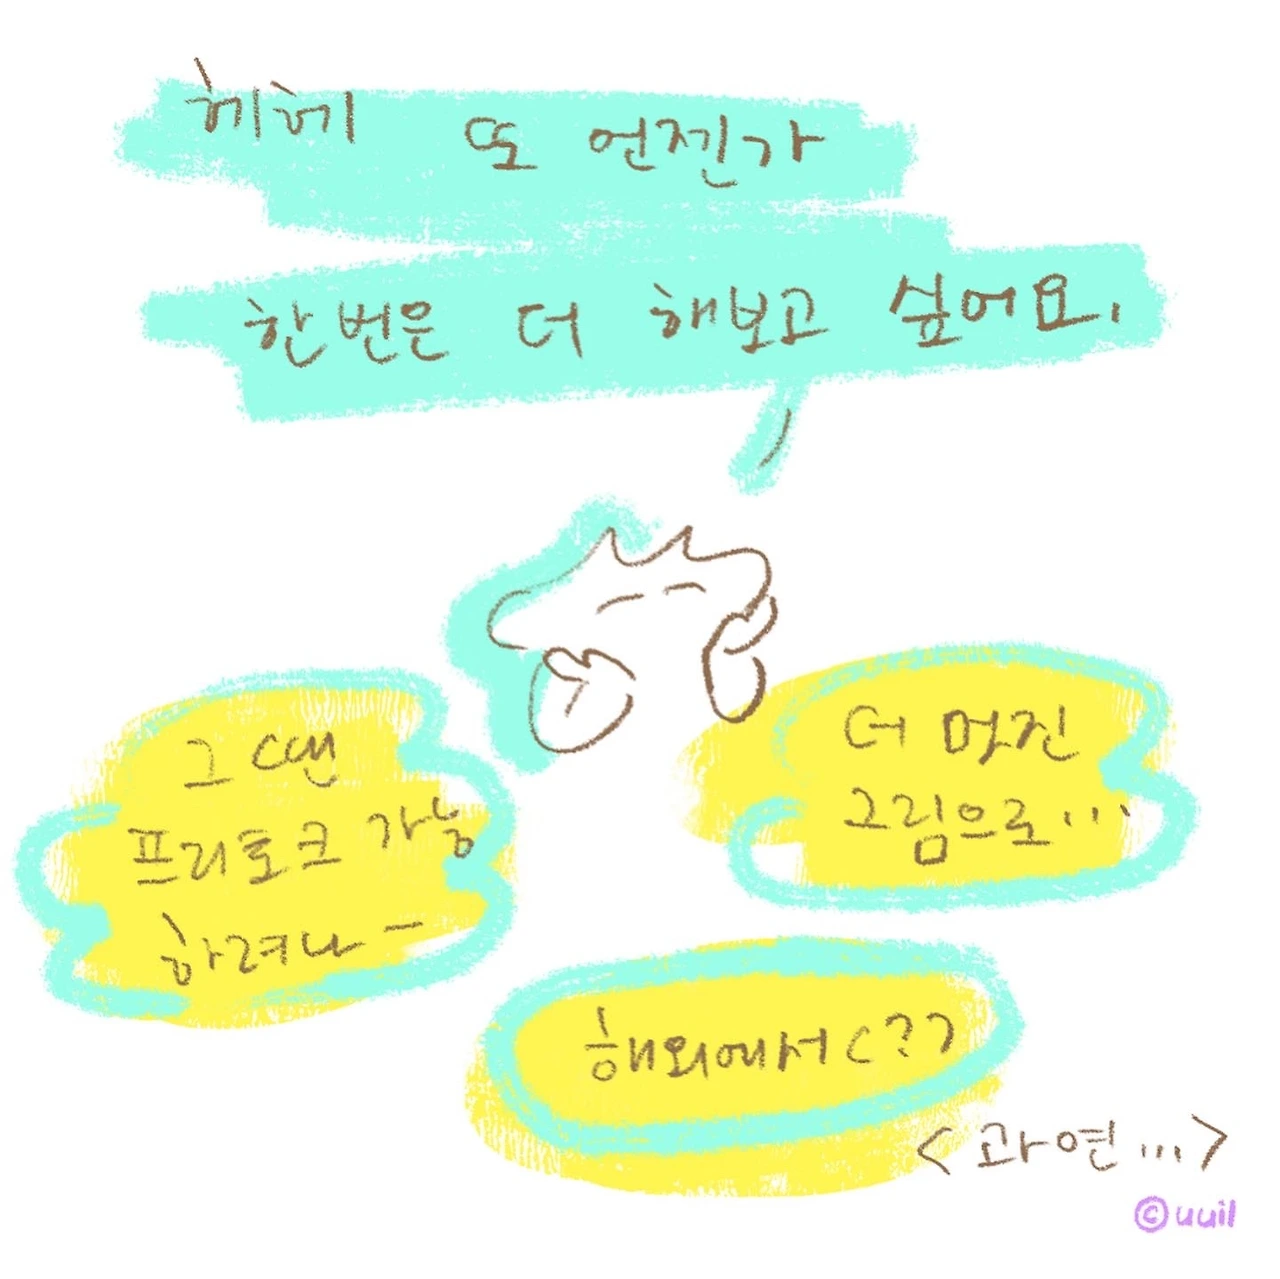 헤헤 또 언젠가
한번은 더 해보고 싶어요.
그 땐
프리토크 가능
하려나-
더 멋진
그림으로...
해외에서(??)
<과연...>
©uuil